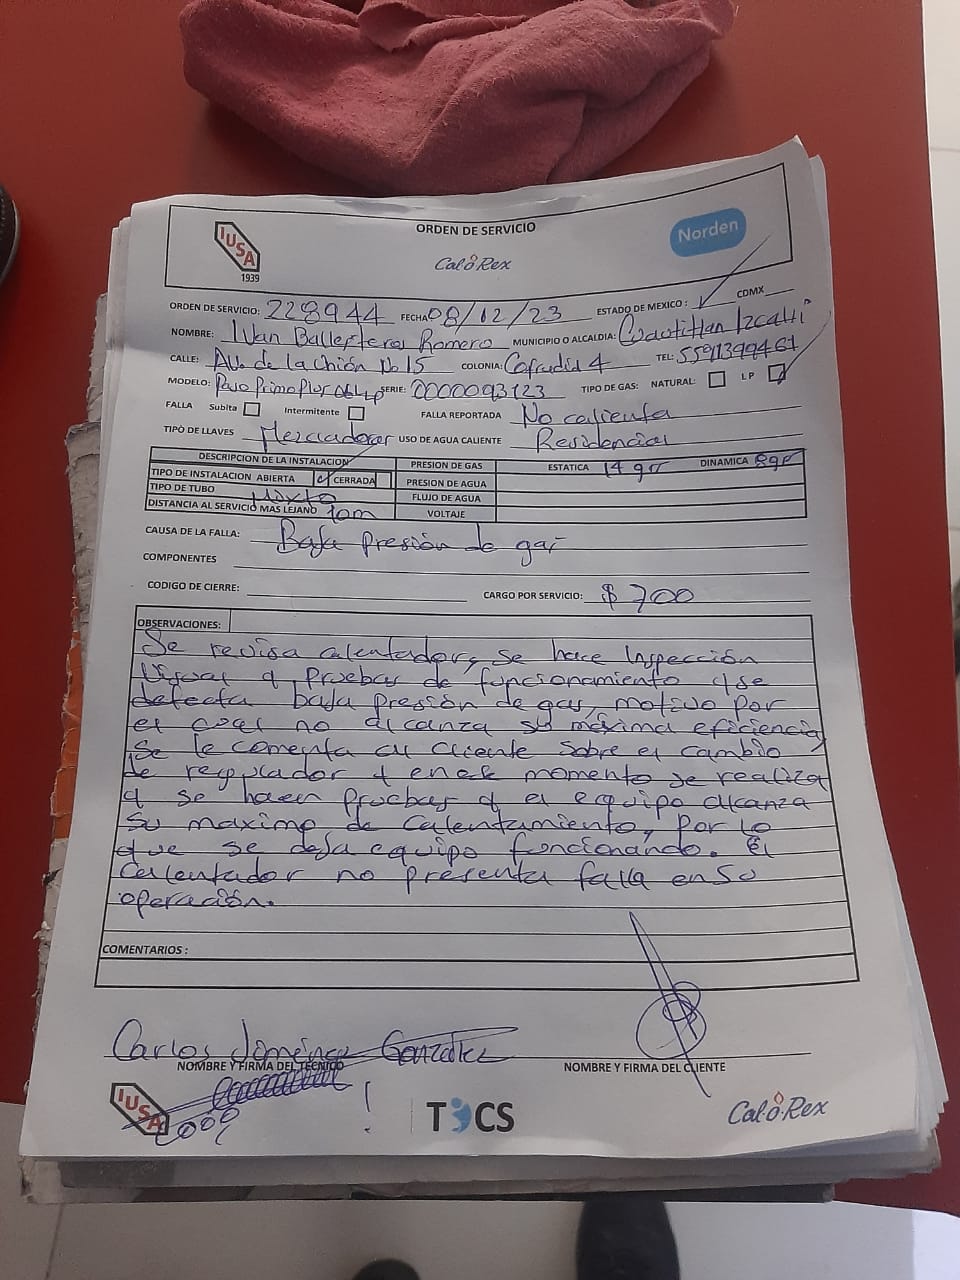 IUSA
1939
ORDEN DE SERVICIO
CaloRex
Norden
ORDEN DE SERVICIO: 228944 FECHA 08/12/23 ESTADO DE MEXICO: ✓ CDMX
NOMBRE: Ivan Ballesteros Romero MUNICIPIO O ALCALDIA: Cuautitlan Izcalli
CALLE: Av. de la Chión No 15 COLONIA: Cofradia 4 TEL: 5591399461
MODELO: Paso Primo Plus 06 Lp SERIE: 0000093123 TIPO DE GAS: NATURAL: LP
FALLA Subita Intermitente FALLA REPORTADA No calienta
TIPO DE LLAVES Mezcladoras USO DE AGUA CALIENTE Residencial
DESCRIPCION DE LA INSTALACION PRESION DE GAS ESTATICA 14 gr DINAMICA 8gr
TIPO DE INSTALACION ABIERTA CERRADA PRESION DE AGUA
TIPO DE TUBO Mixto FLUJO DE AGUA
DISTANCIA AL SERVICIO MAS LEJANO 10m VOLTAJE
CAUSA DE LA FALLA: Baja presión de gas
COMPONENTES
CODIGO DE CIERRE: CARGO POR SERVICIO: $700
OBSERVACIONES:
Se revisa calentador, se hace Inspección
Visual y Pruebas de funcionamiento y se
detecta baja presión de gas, motivo por
el cual no alcanza su máxima eficiencia,
se le comenta al cliente sobre el cambio
de regulador y en ese momento se realiza
y se hacen pruebas y el equipo alcanza
su maximo de calentamiento, por lo
que se deja equipo funcionando. El
Calentador no presenta falla en su
operación.
COMENTARIOS :
Carlos Jiménez González
NOMBRE Y FIRMA DEL TECNICO NOMBRE Y FIRMA DEL CLIENTE
IUSA
TICS
CaloRex